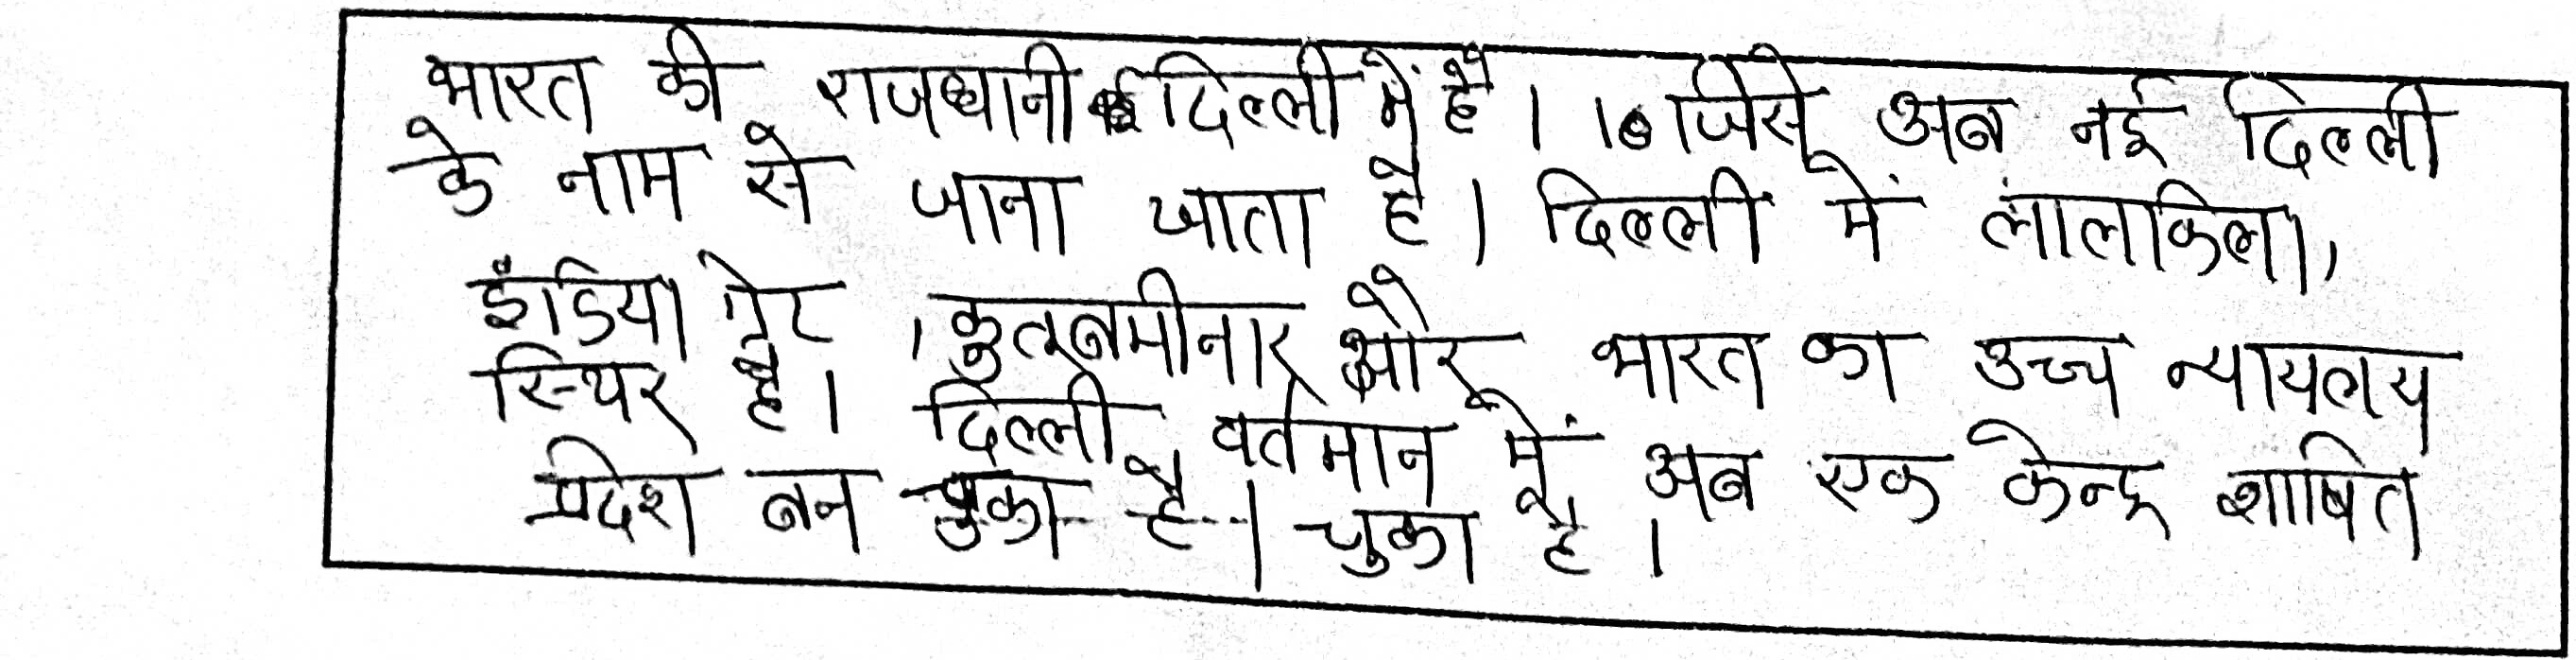 भारत की राजधानी दिल्ली में है। जिसे अब नई दिल्ली
के नाम से जाना जाता है। दिल्ली में लालकिला,
इंडिया गेट, कुतूबमीनार और भारत का उच्च न्यायलय
स्थिर है। दिल्ली वर्तमान में अब एक केन्द्र शाषित
प्रदेश बन चुका है। चुका है।